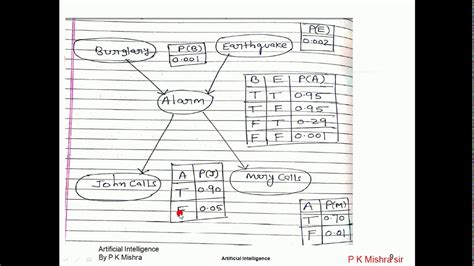 P(E)
0.002
Burglary
P(B)
0.001
Earthquake
B E P(A)
T T 0.95
T F 0.95
F T 0.29
F F 0.001
Alarm
John Calls
A P(J)
T 0.90
F 0.05
Mery Calls
A P(M)
T 0.70
F 0.01
Artificial Intelligence
By P K Mishra
Artificial Intelligence
P K Mishra sir